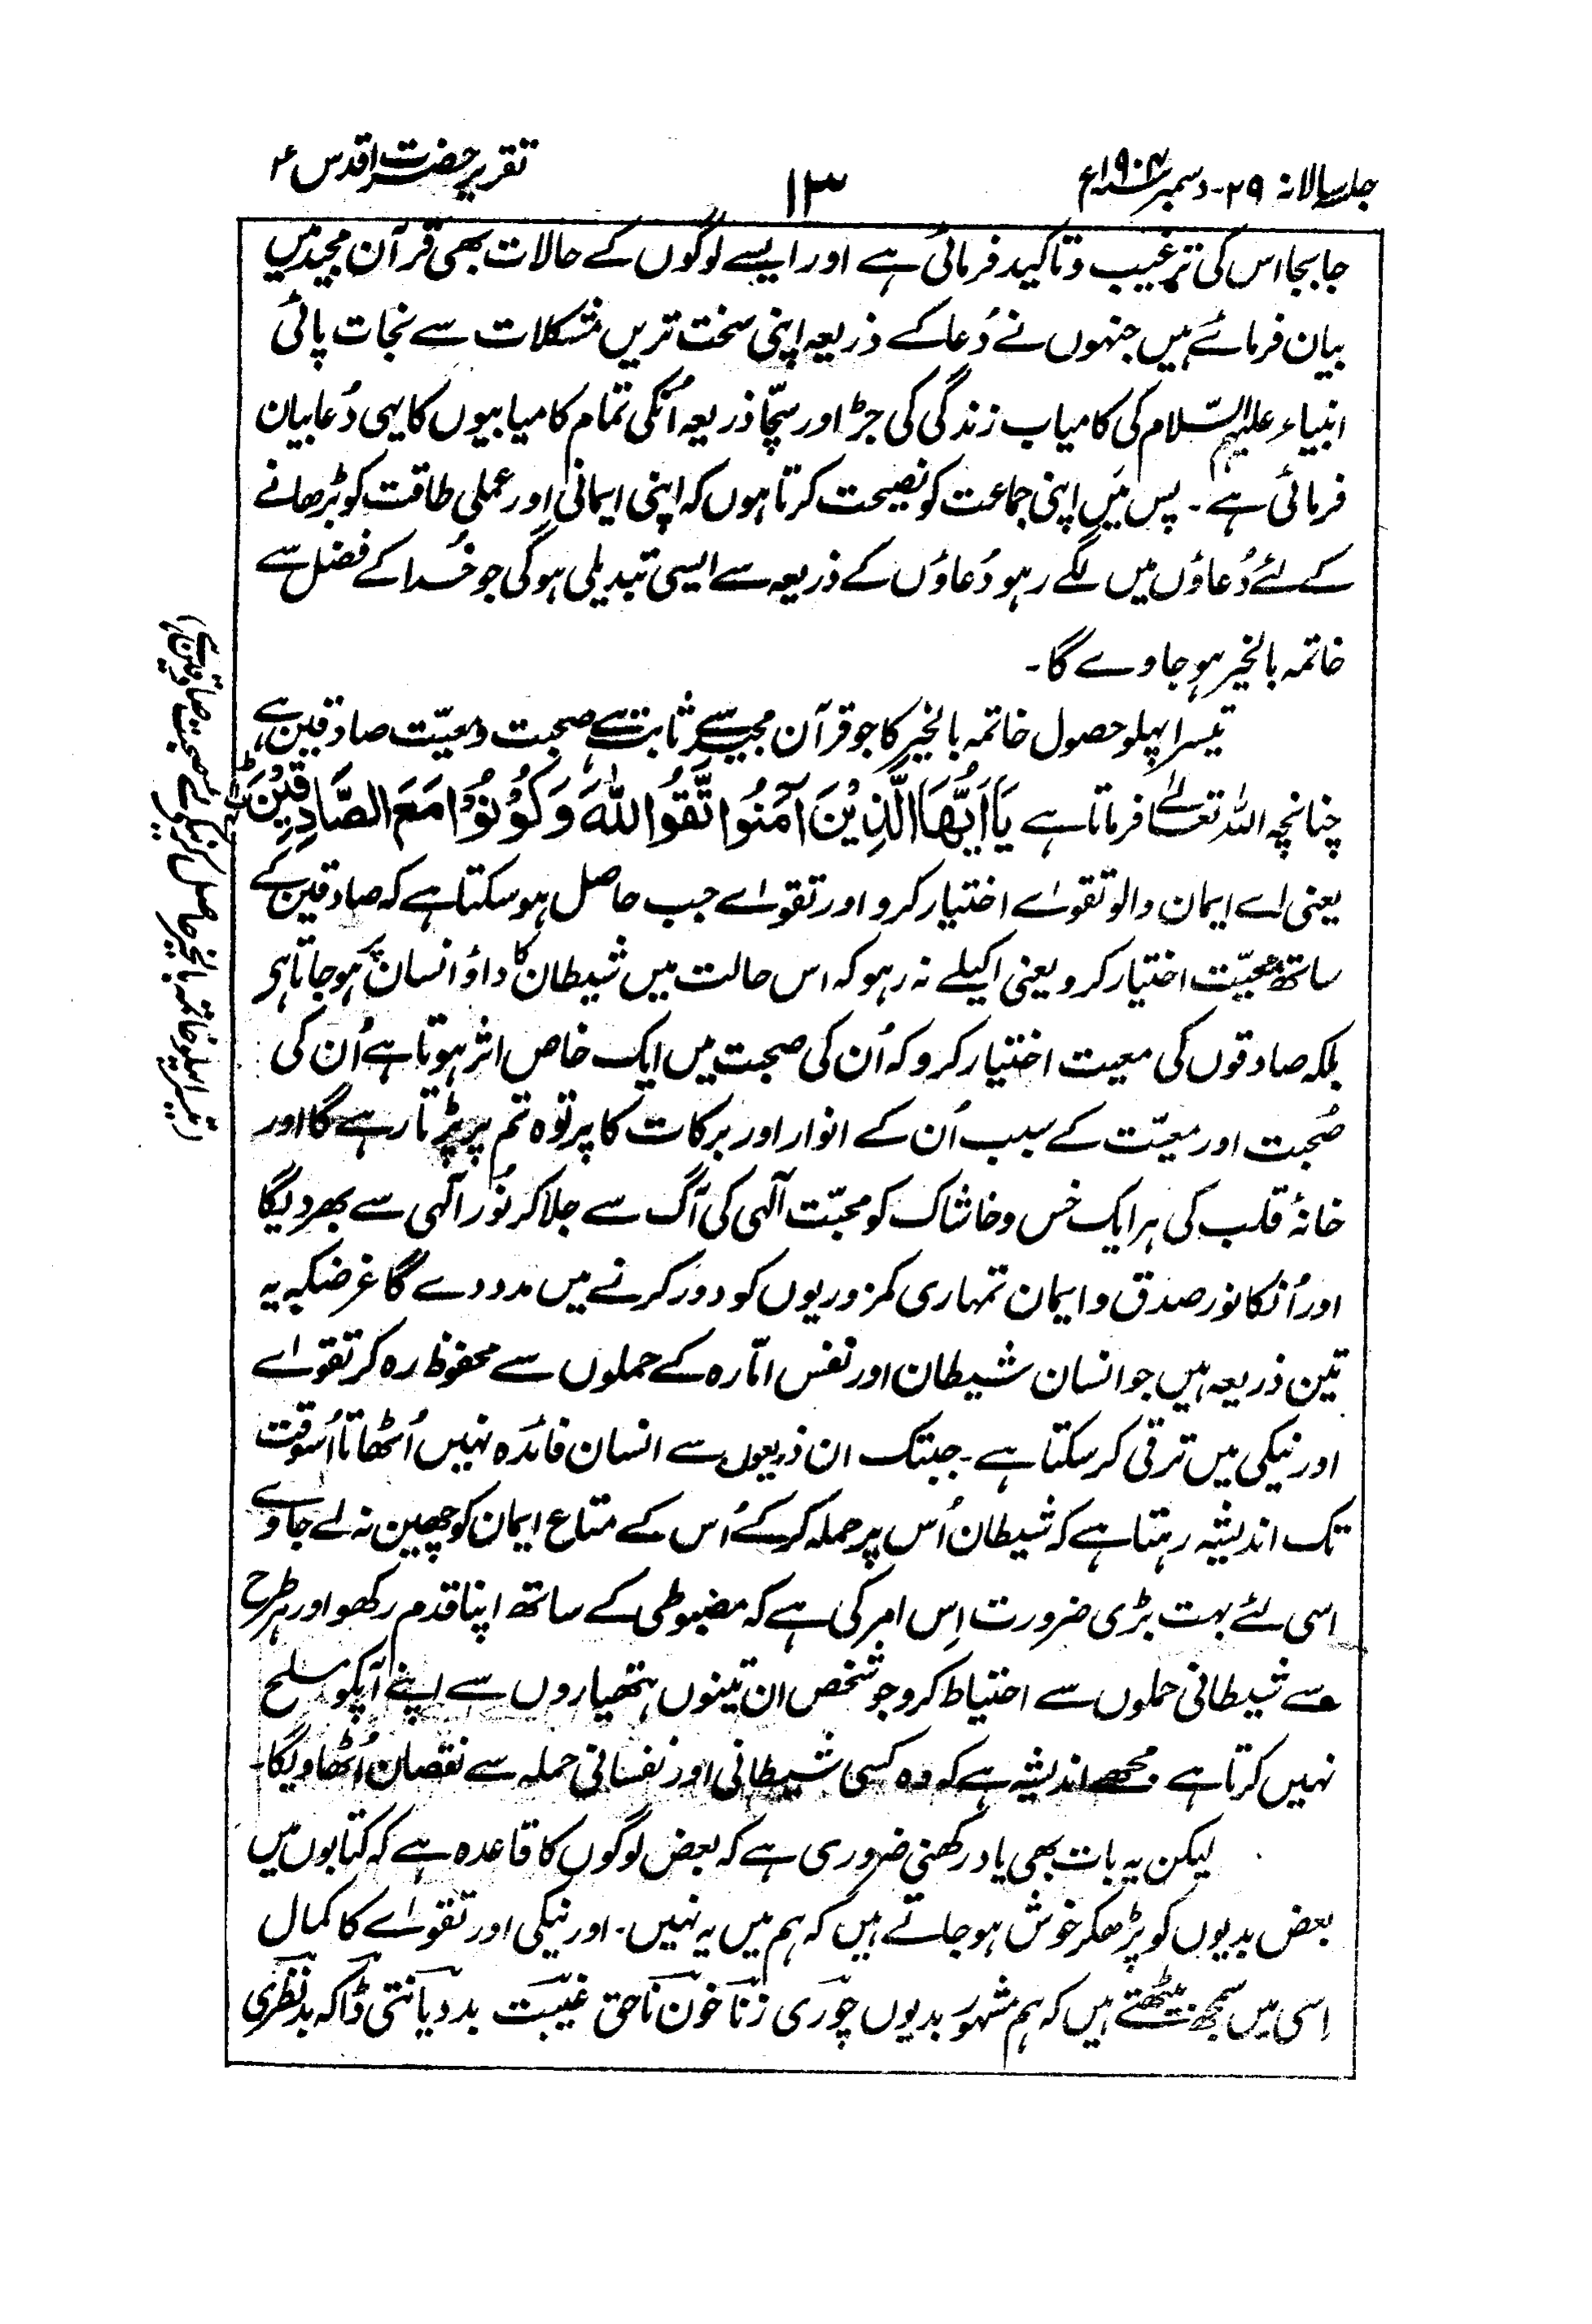 جلسہ سالانہ ۲۹-دسمبر ۱۹۰۴ء
۱۳
تقریر حضرت اقدس ؑ
جا بجا اس کی ترغیب و تاکید فرمائی ہے اور ایسے لوگوں کے حالات بھی قرآن مجید میں
بیان فرمائے ہیں جنہوں نے دُعا کے ذریعہ اپنی سخت تریں مشکلات سے نجات پائی
انبیاء علیہم السّلام کی کامیاب زندگی کی جڑ اور سچّا ذریعہ اُنکی تمام کامیابیوں کا یہی دُعا بیان
فرمائی ہے ۔ پس مَیں اپنی جماعت کو نصیحت کرتا ہوں کہ اپنی ایمانی اور عملی طاقت کو بڑھانے
کے لئے دُعاؤں میں لگے رہو دُعاؤں کے ذریعہ سے ایسی تبدیلی ہوگی جو خُدا کے فضل سے
خاتمہ بالخیر ہو جاوے گا ۔
تیسرا پہلو حصول خاتمہ بالخیر کا جو قرآن مجید سے ثابت ہے صحبت و معیّت صادقین ہے
چنانچہ اللہ تعالےٰ فرماتا ہے يَا اَيُّهَا الَّذِيْنَ آمَنُوا تَّقُوا اللّٰهَ وَكُوْنُوْا مَعَ الصَّادِقِيْنَ
یعنی اے ایمان والو تقوےٰ اختیار کرو اور تقوےٰ جب حاصل ہو سکتا ہے کہ صادقین کے
ساتھ معیّت اختیار کرو یعنی اکیلے نہ رہو کہ اس حالت میں شیطان کا داؤ انسان پر ہو جاتا ہی
بلکہ صادقوں کی معیت اختیار کرو کہ اُن کی صحبت میں ایک خاص اثر ہوتا ہے اُن کی
صُحبت اور معیّت کے سبب اُن کے انوار اور برکات کا پرتوہ تم پر پڑتا رہے گا اور
خانۂ قلب کی ہر ایک خس و خاشاک کو محبّت الٓہی کی آگ سے جلا کر نُور الٓہی سے بھر دیگا
اور اُنکا نور صدق و ایمان تمہاری کمزوریوں کو دور کرنے میں مدد دے گا غرضکہ یہ
تین ذریعہ ہیں جو انسان شیطان اور نفس امّارہ کے حملوں سے محفوظ رہ کر تقوےٰ
اور نیکی میں ترقی کر سکتا ہے ۔ جبتک ان ذریعوں سے انسان فائدہ نہیں اُٹھاتا اُسوقت
تک اندیشہ رہتا ہے کہ شیطان اُس پر حملہ کر کے اُس کے متاع ایمان کو چھین نہ لے جاوے
اسی لئے بہت بڑی ضرورت اِس امر کی ہے کہ مضبوطی کے ساتھ اپنا قدم رکھو اور ہر طرح
سے شیطانی حملوں سے احتیاط کرو جو شخص ان تینوں ہتھیاروں سے اپنے آپکو مسلح
نہیں کرتا ہے مجھے اندیشہ ہے کہ وہ کسی شیطانی اور نفسانی حملہ سے نقصان اُٹھاویگا۔
لیکن یہ بات بھی یاد رکھنی ضروری ہے کہ بعض لوگوں کا قاعدہ ہے کہ کتابوں میں
بعض بدیوں کو پڑھکر خوش ہو جاتے ہیں کہ ہم میں یہ نہیں ۔ اور نیکی اور تقوےٰ کا کمال
اِسی میں سمجھ بیٹھتے ہیں کہ ہم مشہور بدیوں چوری زنا خون ناحق غیبت بددیانتی ڈاکہ بدنظری
(تیسرا پہلو خاتمہ بالخیر حاصل کرنیکے لئے صحبت صادقین ہے)